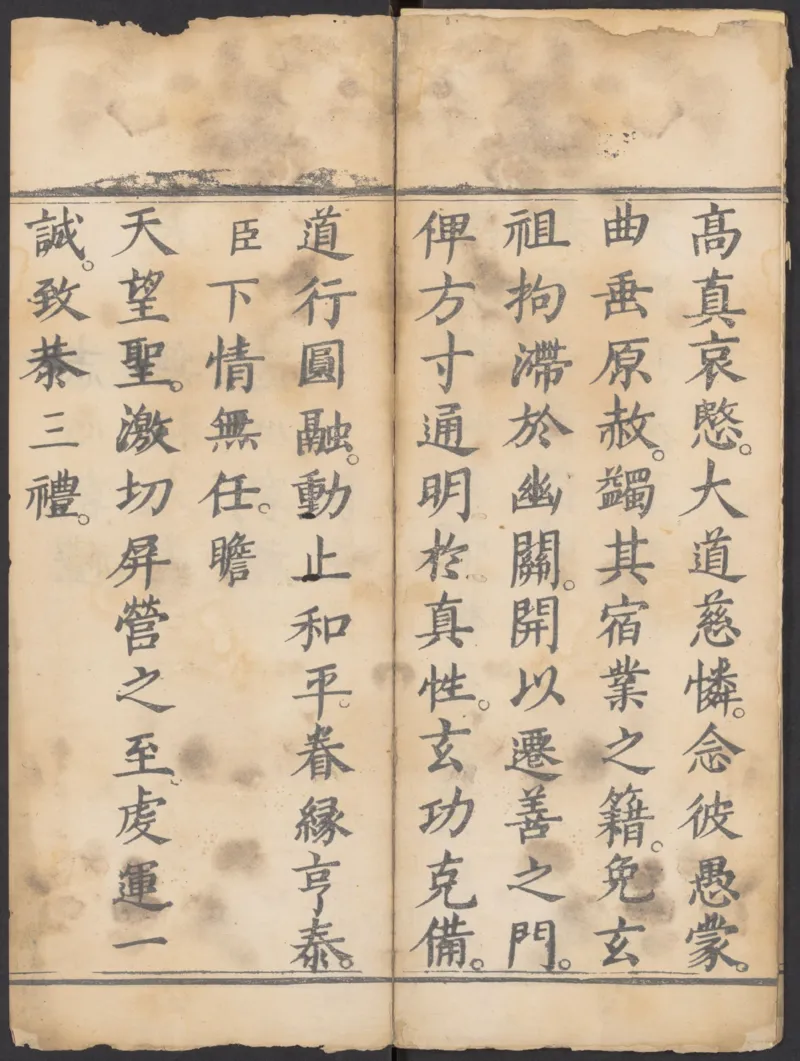 高真哀愍。大道慈憐。念彼愚蒙。
曲垂原赦。蠲其宿業之籍。免玄
祖拘滯於幽關。開以遷善之門。
俾方寸通明於真性。玄功克備。
道行圓融。動止和平。眷緣亨泰。
臣下情無任。瞻
天望聖。激切屏營之至。虔運一
誠。致恭三禮。